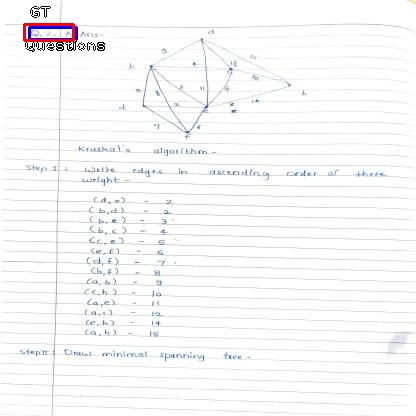 GT
Q.2. A Ans-
Questions
d
9
15
b
4
13
c
10
h
2
8
3
11
6
14
d
2
e
7
6
f
Kruskal's algorithm-
Step I : Write edges in ascending order of there
weight-
(d,e) - 2
(b,d) - 2
(b,e) - 3
(b,c) - 4
(c,e) - 5
(e,f) - 6
(d,f) - 7
(b,f) - 8
(a,b) - 9
(c,h) - 10
(a,e) - 11
(a,c) - 12
(e,h) - 14
(a,h) - 15
Step II: Draw minimal spanning tree-